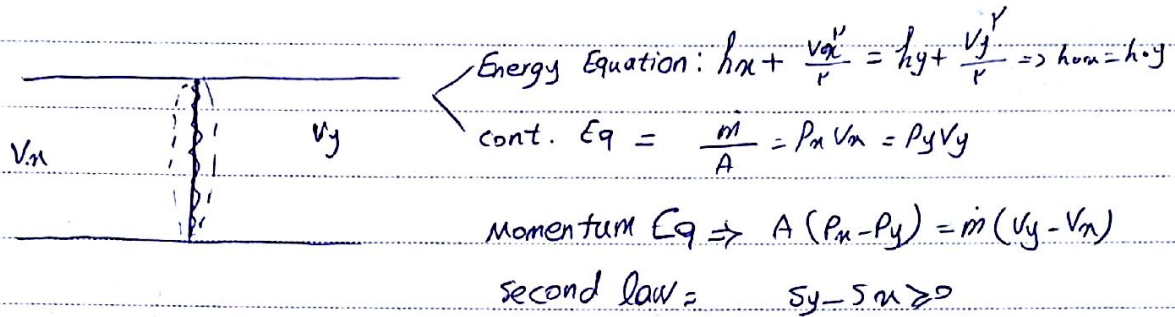 Energy Equation: hx + Vx²/۲ = hy + Vy²/۲ => hox = hoy
Vx
Vy
cont. Eq = ṁ/A = ρx Vx = ρy Vy
Momentum Eq => A (Px - Py) = ṁ (Vy - Vx)
second law = sy - sx ≥ 0